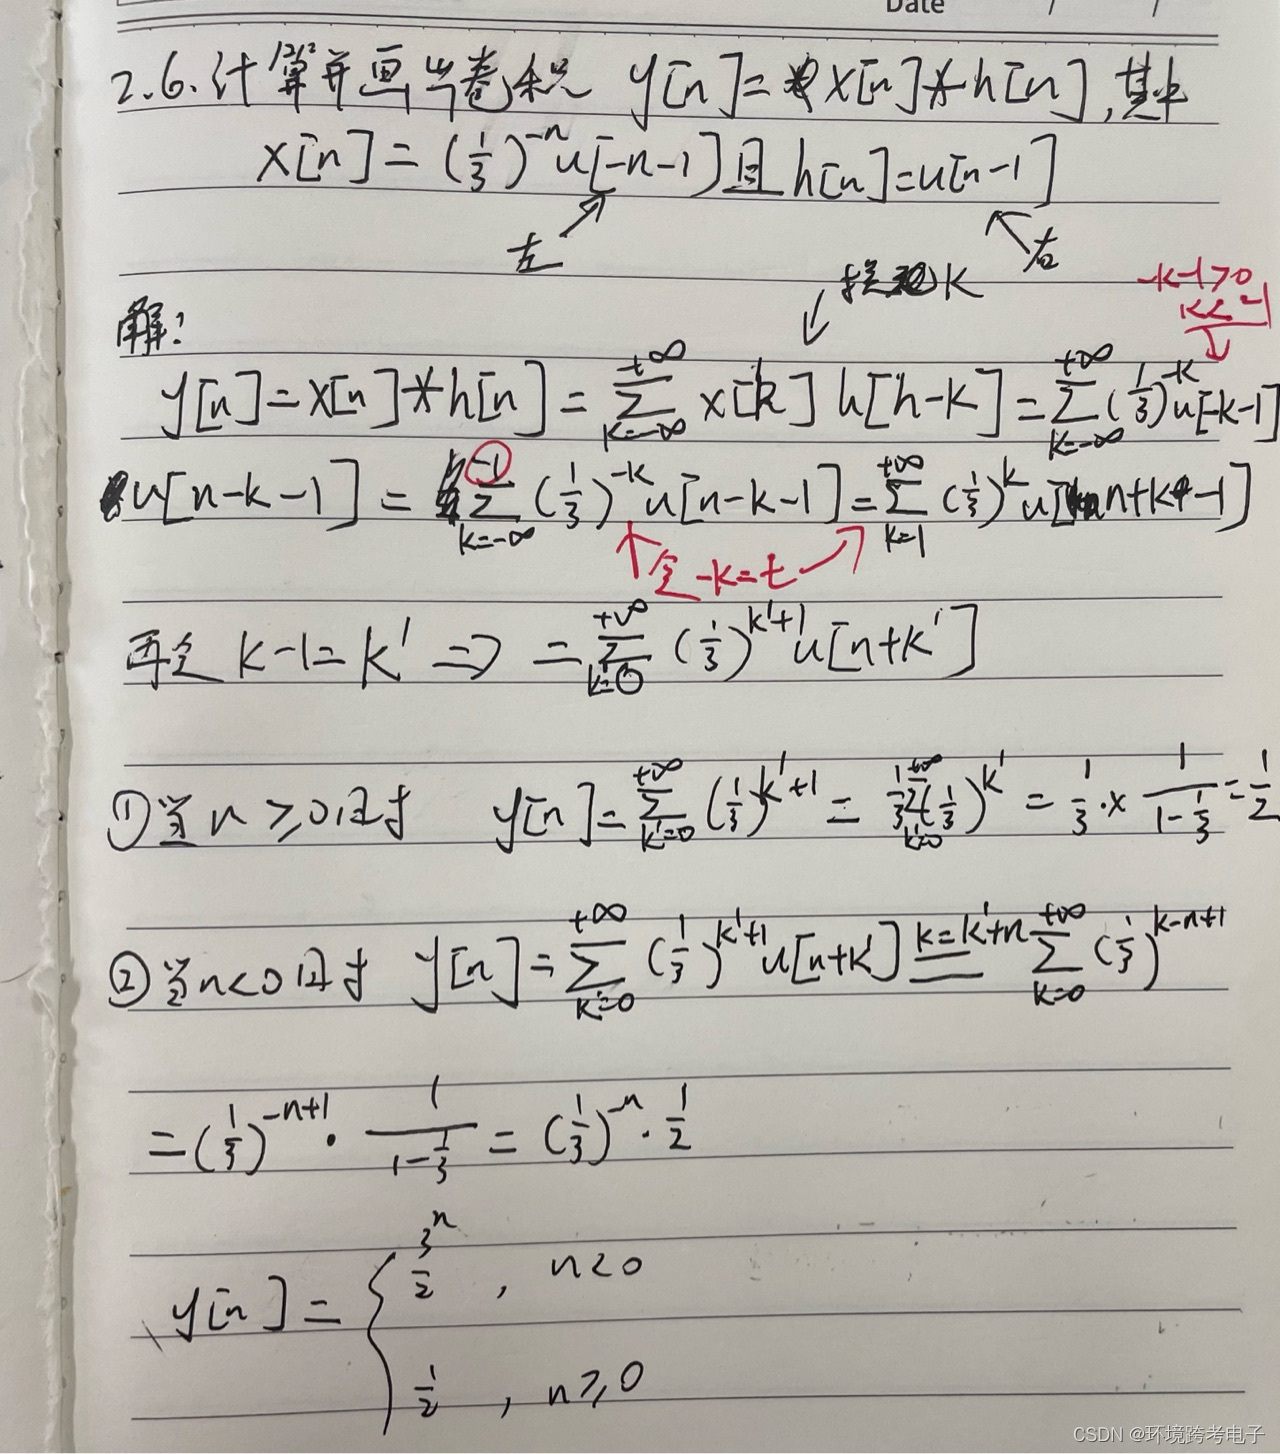 Date / /
2.6.计算并画出卷积 y[n]=x[n]*h[n],其中
x[n]=(1/3)^{-n}u[-n-1]且h[n]=u[n-1]
左 右
k
-k-1>0
k<-1
解:
y[n]=x[n]*h[n]=\sum_{k=-∞}^{+∞} x[k]h[n-k]=\sum_{k=-∞}^{+∞}(1/3)^{-k}u[-k-1]
u[n-k-1]=\sum_{k=-∞}^{-1}(1/3)^{-k}u[n-k-1]=\sum_{k=1}^{+∞}(1/3)^{k}u[n+k-1]
令-k=t
再令 k-1=k' ⇒ =\sum_{k'=0}^{+∞}(1/3)^{k'+1}u[n+k']
①当n≥0时 y[n]=\sum_{k'=0}^{+∞}(1/3)^{k'+1}=1/3\sum_{k'=0}^{+∞}(1/3)^{k'}=1/3·×1/(1-1/3)=1/2
②当n<0时 y[n]=\sum_{k'=0}^{+∞}(1/3)^{k'+1}u[n+k'] k=k'+n = \sum_{k=0}^{+∞}(1/3)^{k-n+1}
=(1/3)^{-n+1}·1/(1-1/3)=(1/3)^{-n}·1/2
y[n]={ 3^n/2 , n<0
1/2 , n≥0
CSDN @环境跨考电子